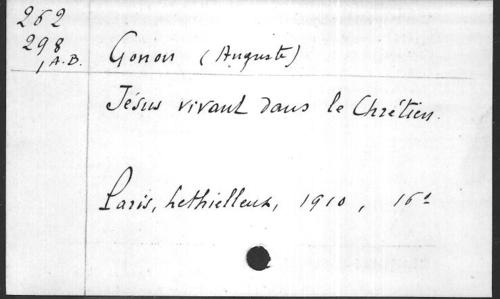 262
298
, A.B.
Gonon (Auguste)
Jésus vivant dans le Chrétien.
Paris, Lethielleux, 1910, 16°